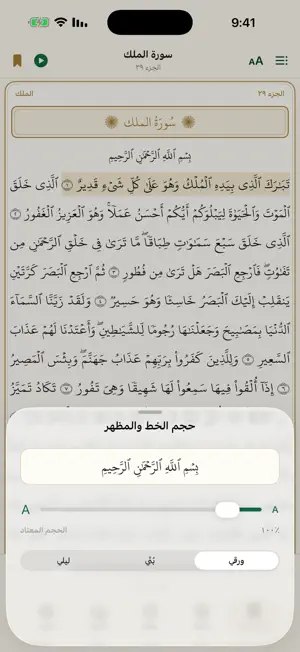 9:41
سورة الملك
الجزء ٢٩
AA
الجزء ٢٩
الملك
سُورَةُ المُلك
بِسْمِ ٱللَّهِ ٱلرَّحْمَٰنِ ٱلرَّحِيمِ
تَبَٰرَكَ ٱلَّذِى بِيَدِهِ ٱلْمُلْكُ وَهُوَ عَلَىٰ كُلِّ شَىْءٍ قَدِيرٌ ١ ٱلَّذِى خَلَقَ
ٱلْمَوْتَ وَٱلْحَيَوٰةَ لِيَبْلُوَكُمْ أَيُّكُمْ أَحْسَنُ عَمَلًا ۚ وَهُوَ ٱلْعَزِيزُ ٱلْغَفُورُ ٢
ٱلَّذِى خَلَقَ سَبْعَ سَمَٰوَٰتٍ طِبَاقًا ۖ مَّا تَرَىٰ فِى خَلْقِ ٱلرَّحْمَٰنِ مِن
تَفَٰوُتٍ ۖ فَٱرْجِعِ ٱلْبَصَرَ هَلْ تَرَىٰ مِن فُطُورٍ ٣ ثُمَّ ٱرْجِعِ ٱلْبَصَرَ كَرَّتَيْنِ
يَنقَلِبْ إِلَيْكَ ٱلْبَصَرُ خَاسِئًا وَهُوَ حَسِيرٌ ٤ وَلَقَدْ زَيَّنَّا ٱلسَّمَآءَ
ٱلدُّنْيَا بِمَصَٰبِيحَ وَجَعَلْنَٰهَا رُجُومًا لِّلشَّيَٰطِينِ ۖ وَأَعْتَدْنَا لَهُمْ عَذَابَ
ٱلسَّعِيرِ ٥ وَلِلَّذِينَ كَفَرُوا۟ بِرَبِّهِمْ عَذَابُ جَهَنَّمَ ۖ وَبِئْسَ ٱلْمَصِيرُ
٦ إِذَآ أُلْقُوا۟ فِيهَا سَمِعُوا۟ لَهَا شَهِيقًا وَهِىَ تَفُورُ ٧ تَكَادُ تَمَيَّزُ
حجم الخط والمظهر
بِسْمِ ٱللَّهِ ٱلرَّحْمَٰنِ ٱلرَّحِيمِ
A
A
١٠٠٪
الحجم المعتاد
ورقي
بُنّي
ليلي